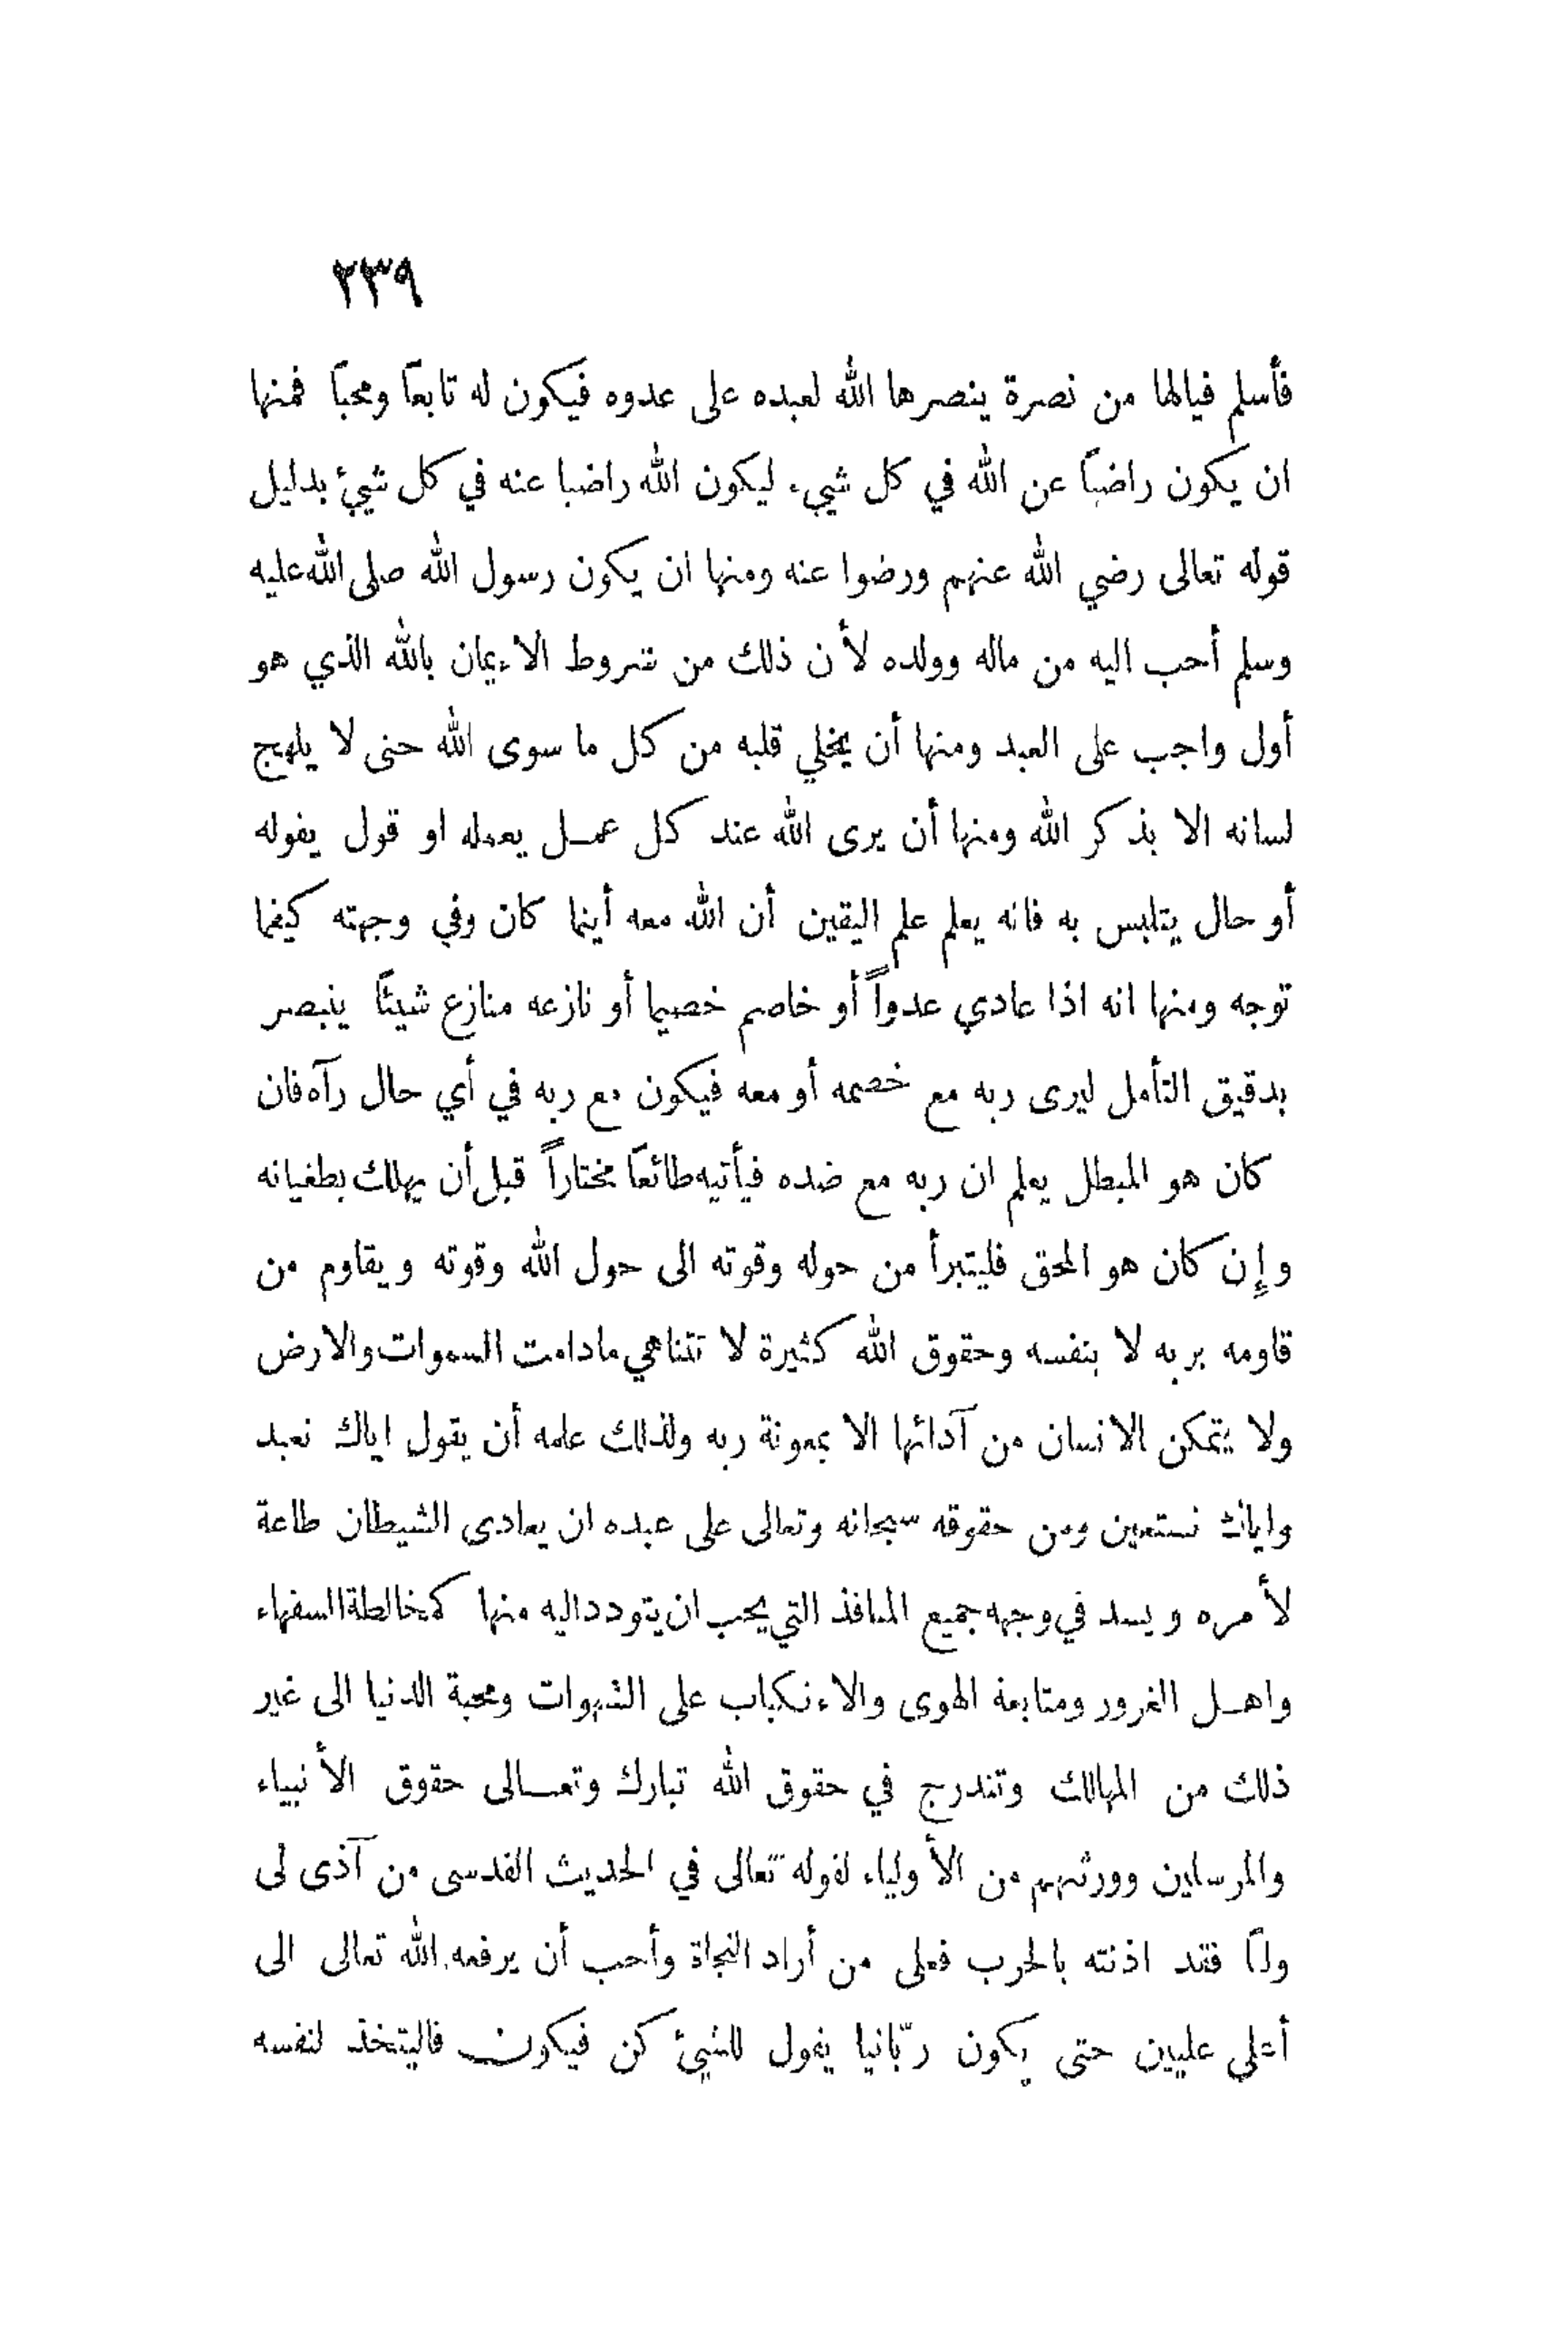 ٢٣٩
فأسلم فيالها من نصرة ينصرها الله لعبده على عدوه فيكون له تابعاً ومحباً فمنها
ان يكون راضياً عن الله في كل شيء ليكون الله راضيا عنه في كل شيئ بدليل
قوله تعالى رضي الله عنهم ورضوا عنه ومنها ان يكون رسول الله صلى الله عليه
وسلم أحب اليه من ماله وولده لأن ذلك من شروط الاءيمان بالله الذي هو
أول واجب على العبد ومنها أن يخلي قلبه من كل ما سوى الله حتى لا يلهج
لسانه الا بذكر الله ومنها أن يرى الله عند كل عمل يعمله او قول يقوله
أو حال يتلبس به فانه يعلم علم اليقين أن الله معه أينما كان وفي وجهته كيفما
توجه ومنها انه اذا عادي عدواً أو خاصم خصيما أو نازعه منازع شيئاً ينبصر
بدقيق التأمل ليرى ربه مع خصمه أو معه فيكون مع ربه في أي حال رآه فان
كان هو المبطل يعلم ان ربه مع ضده فيأتيه طائعاً مختاراً قبل أن يهلك بطغيانه
وإن كان هو المحق فليتبرأ من حوله وقوته الى حول الله وقوته ويقاوم من
قاومه بربه لا بنفسه وحقوق الله كثيرة لا تتناهي مادامت السموات والارض
ولا يتمكن الانسان من آدائها الا بمعونة ربه ولذلك علمه أن يقول اياك نعبد
واياك نستعين ومن حقوقه سبحانه وتعالى على عبده ان يعادى الشيطان طاعة
لأمره ويسد في وجهه جميع المنافذ التي يحب ان يتودد اليه منها كمخالطة السفهاء
واهل الغرور ومتابعة الهوى والاءنكباب على الشهوات ومحبة الدنيا الى غير
ذلك من المهالك وتندرج في حقوق الله تبارك وتعالى حقوق الأنبياء
والمرسلين وورثهم من الأولياء لقوله تعالى في الحديث القدسى من آذى لى
ولياً فقد اذنته بالحرب فعلى من أراد النجاة وأحب أن يرفعه الله تعالى الى
أعلى عليين حتى يكون ربّانيا يقول للشيئ كن فيكون فاليتخذ لنفسه